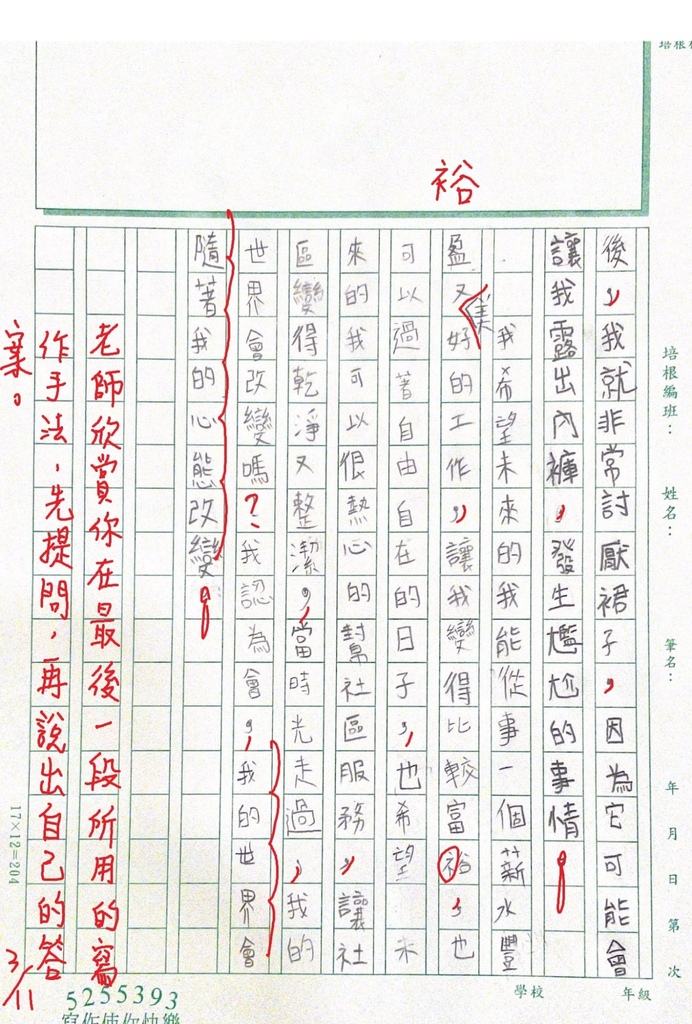 裕
後,我就非常討厭裙子,因為它可能會
讓我露出內褲,發生尷尬的事情。
我希望未來的我能從事一個薪水豐
盈又美好的工作,讓我變得比較富裕,也
可以過著自由自在的日子,也希望未
來的我可以很熱心的幫社區服務,讓社
區變得乾淨又整潔,當時光走過,我的
世界會改變嗎?我認為會,我的世界會
隨著我的心態改變。
老師欣賞你在最後一段所用的寫
作手法,先提問,再說出自己的答
案。
3/11
培根編班:
姓名:
筆名:
年 月 日 第 次
17×12=204
5255393
寫作使你快樂
學校
年級